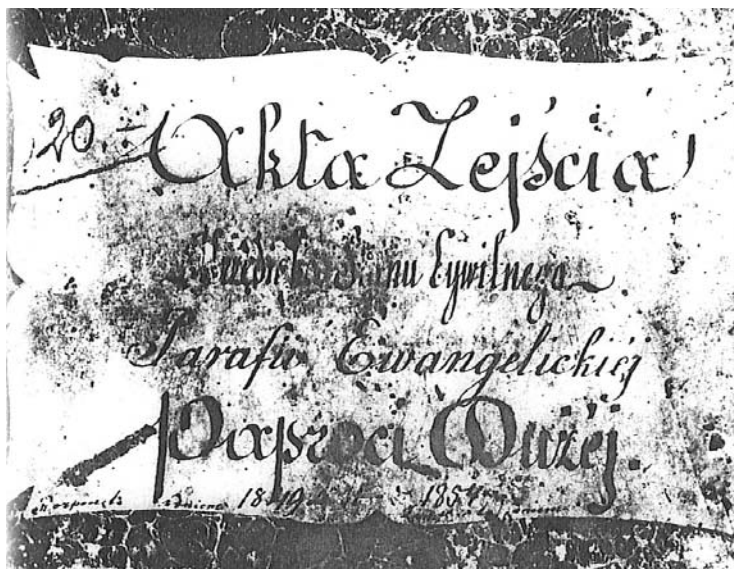 20.-
Akta Zejścia
Urzędnika Stanu Cywilnego
Parafii Ewangelickiéj
Paproci Dużéj.
1849 1854